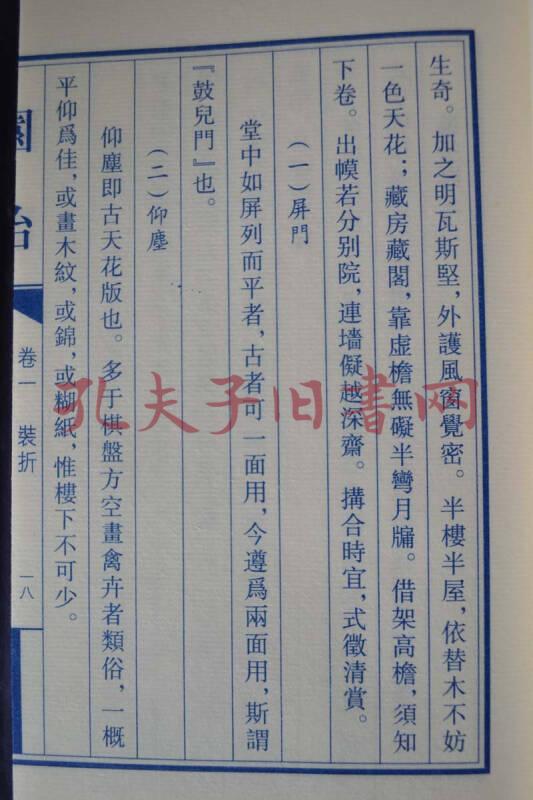 生奇。加之明瓦斯堅，外護風窗覺密。半樓半屋，依替木不妨
一色天花；藏房藏閣，靠虛檐無礙半彎月牖。借架高檐，須知
下卷。出幙若分别院，連墻儗越深齋。搆合時宜，式徵清賞。
（一）屏門
堂中如屏列而平者，古者可一面用，今遵爲兩面用，斯謂
『鼓兒門』也。
（二）仰塵
仰塵即古天花版也。多于棋盤方空畫禽卉者類俗，一概
平仰爲佳，或畫木紋，或錦，或糊紙，惟樓下不可少。
園冶
卷一 裝折
一八
孔夫子旧书网